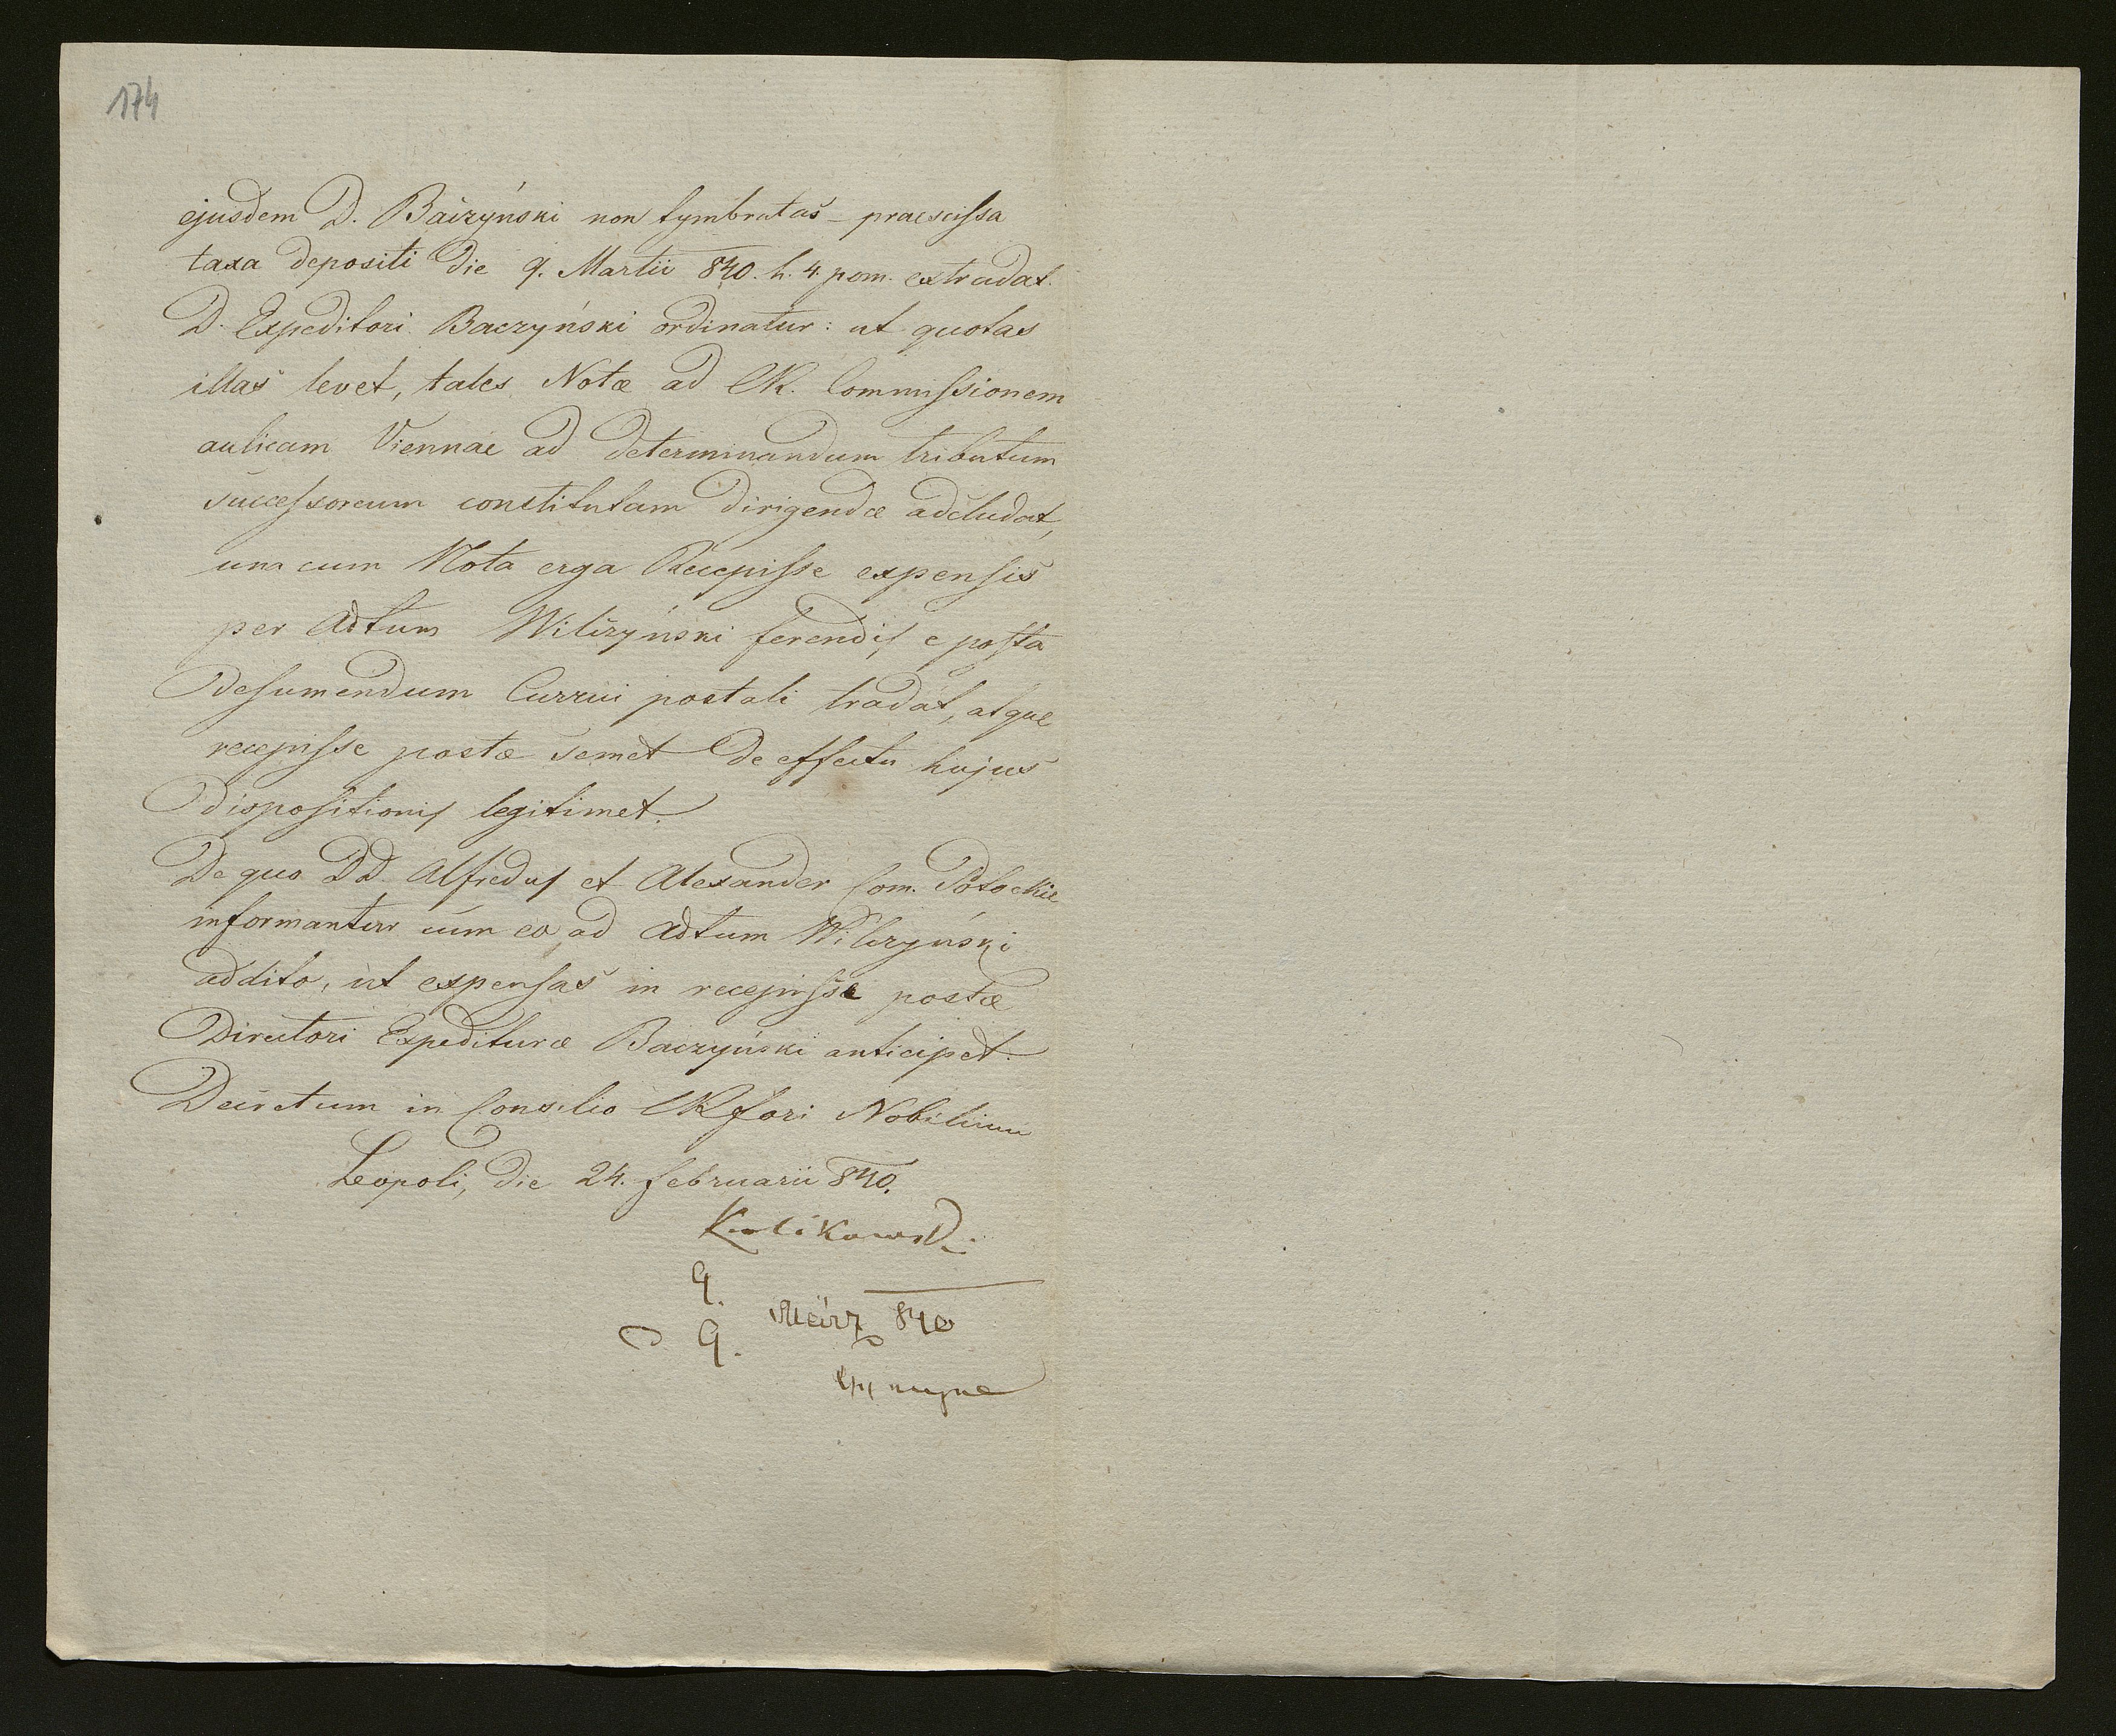 174
ejusdem D. Baczyński non tymbratas – praescissa
taxa depositi die 9. Martii 840. h. 4. pom. extradat.
D. Expeditori Baczyński ordinatur: ut quotas
illas levet, tales Notæ ad CR. Commissionem
aulicam Viennae ad determinandum tributum
successoreum constitutam dirigendæ adcludat,
una cum Nota erga Recepisse expensis
per Adtum Wilczyński ferendis e posta
desumendum Currui postali tradat, atque
recepisse postæ semet de effectu hujus
dispositionis legitimet.
De quo DD. Alfredus et Alexander Com. Potockie
informantur cum eo ad Adtum Wilczyński
addito, ut expensas in recepisse postæ
Directori Expedituræ Baczyński anticipet.
Decretum in Consilio CR fori Nobilium
Leopoli, die 24. februarii 840.
9.
März 840
9.